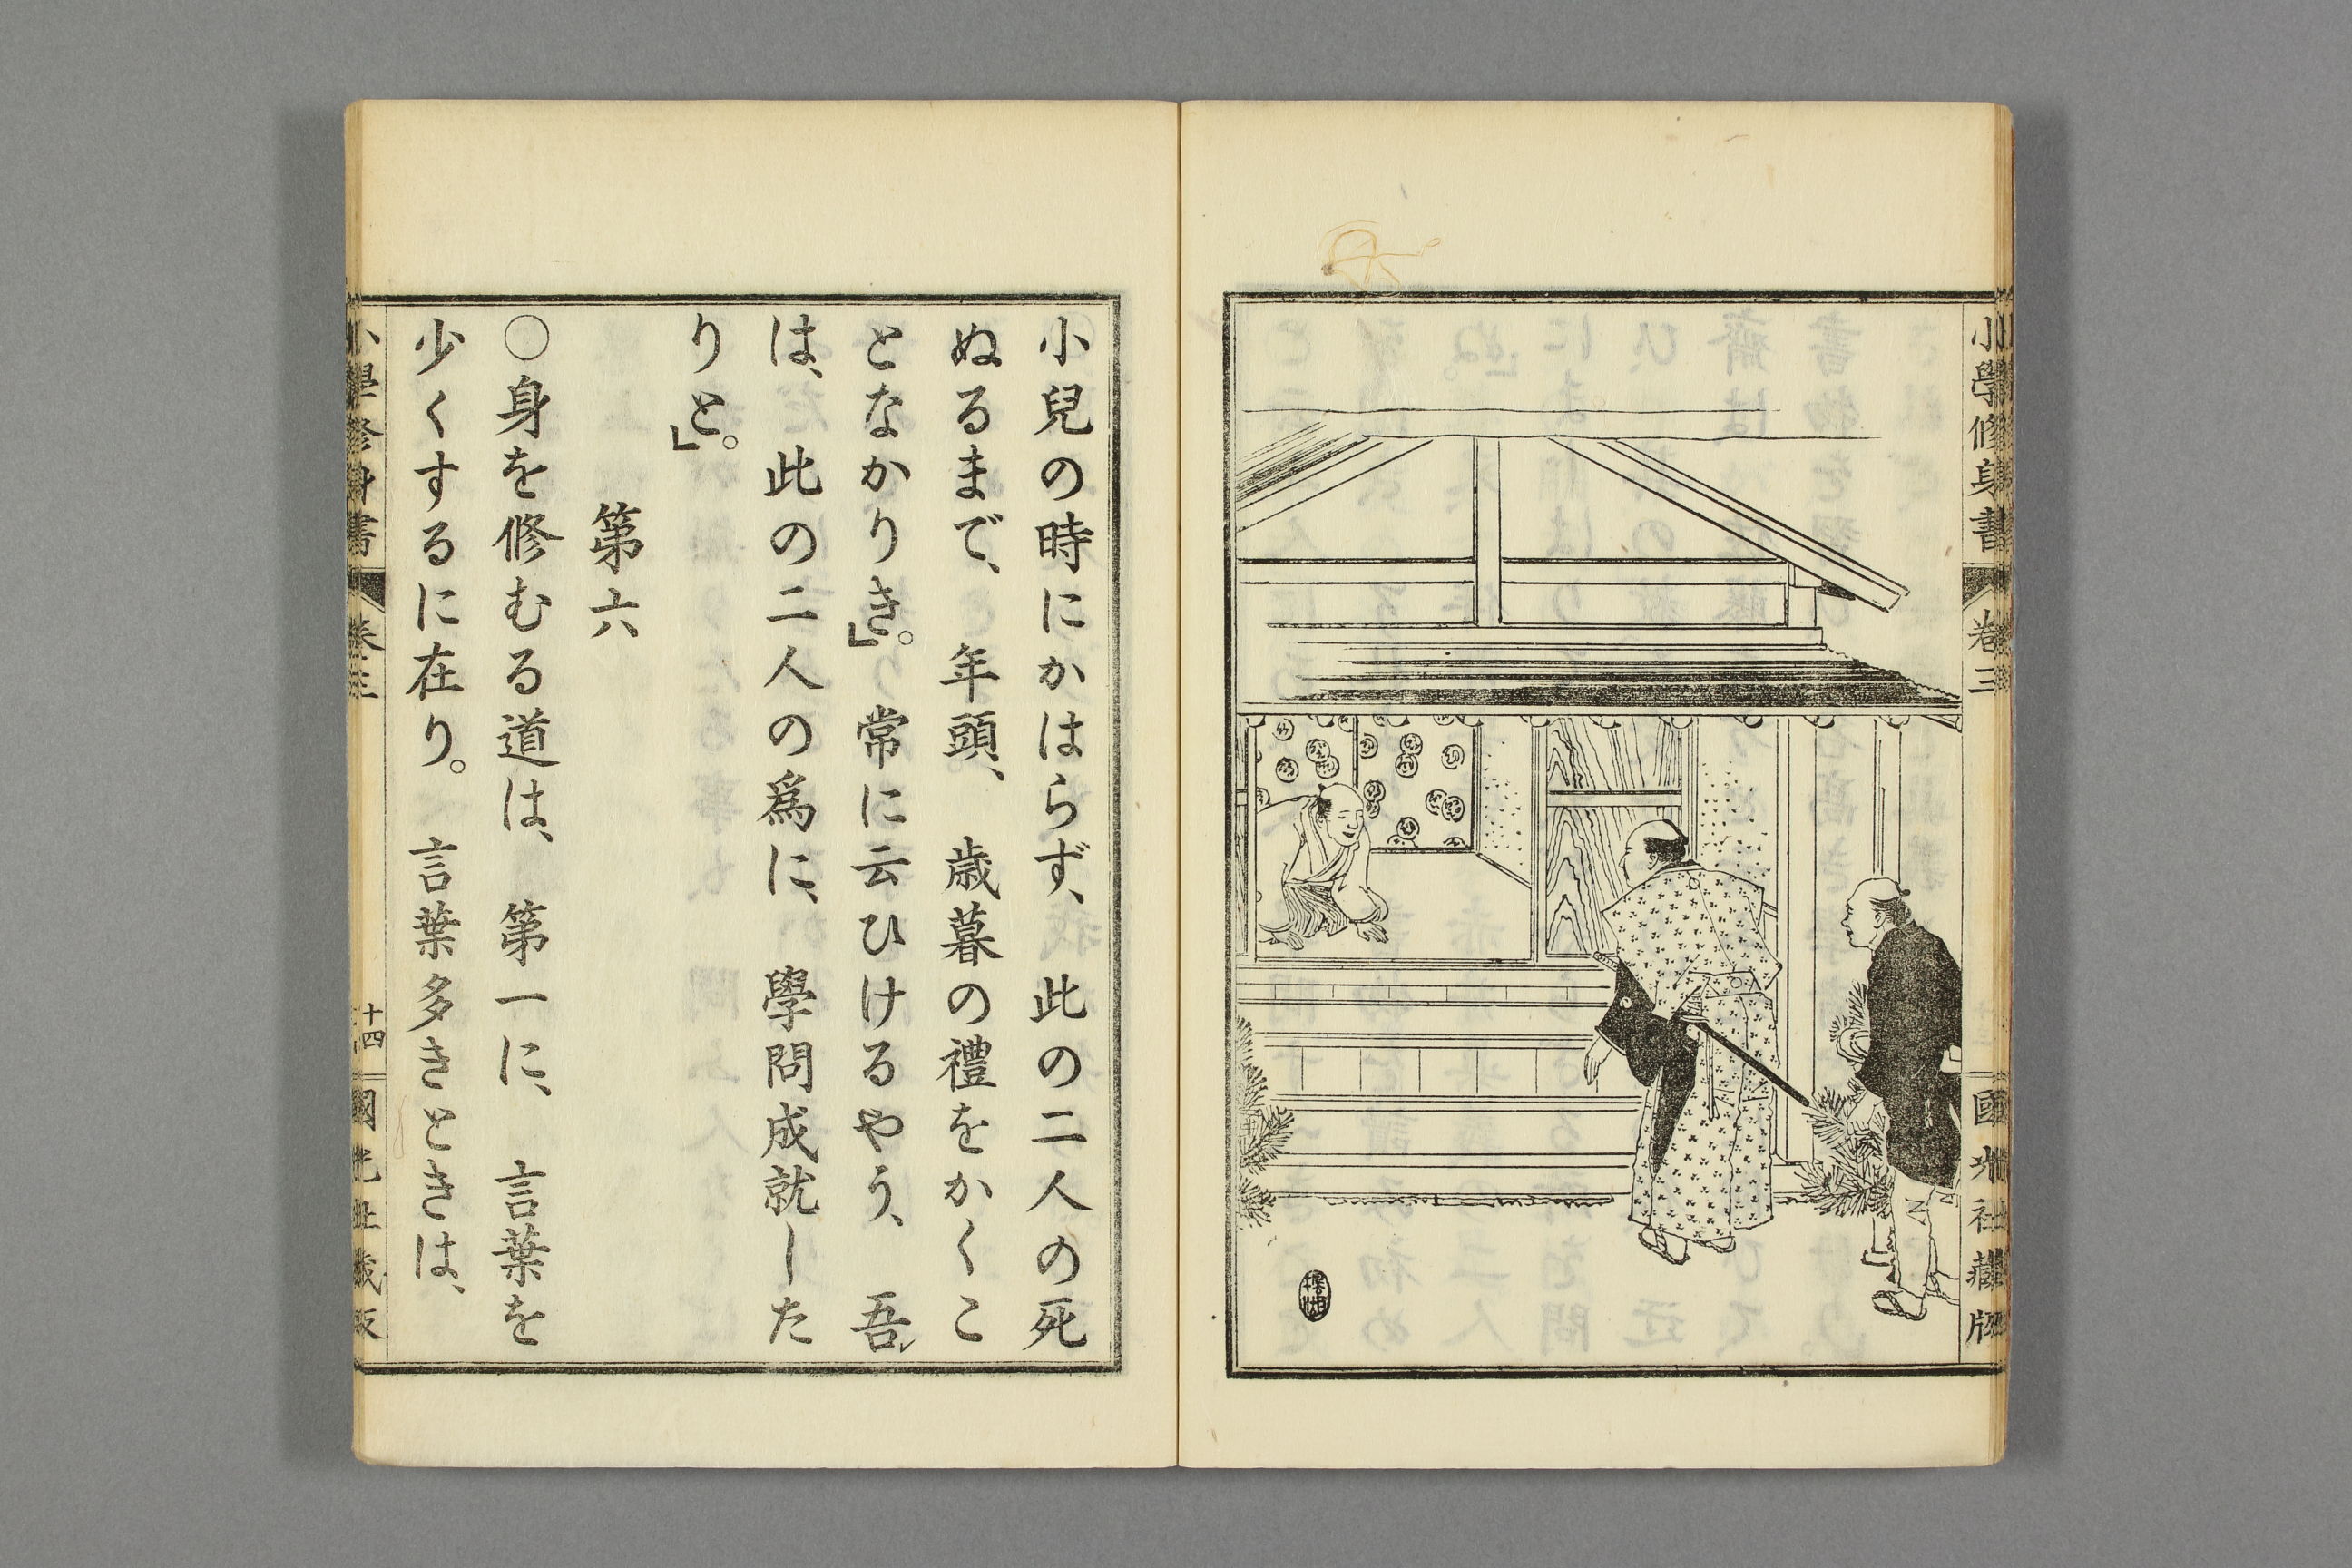 小學修身書
卷三
國光社藏版
小兒の時にかはらず、此の二人の死
ぬるまで、年頭、歳暮の禮をかくこ
となかりき。」常に云ひけるやう、吾
は、此の二人の爲に、學問成就した
りと。」
第六
○身を修むる道は、第一に、言葉を
少くするに在り。言葉多きときは、
小學修身書
卷三
十四
國光社藏版